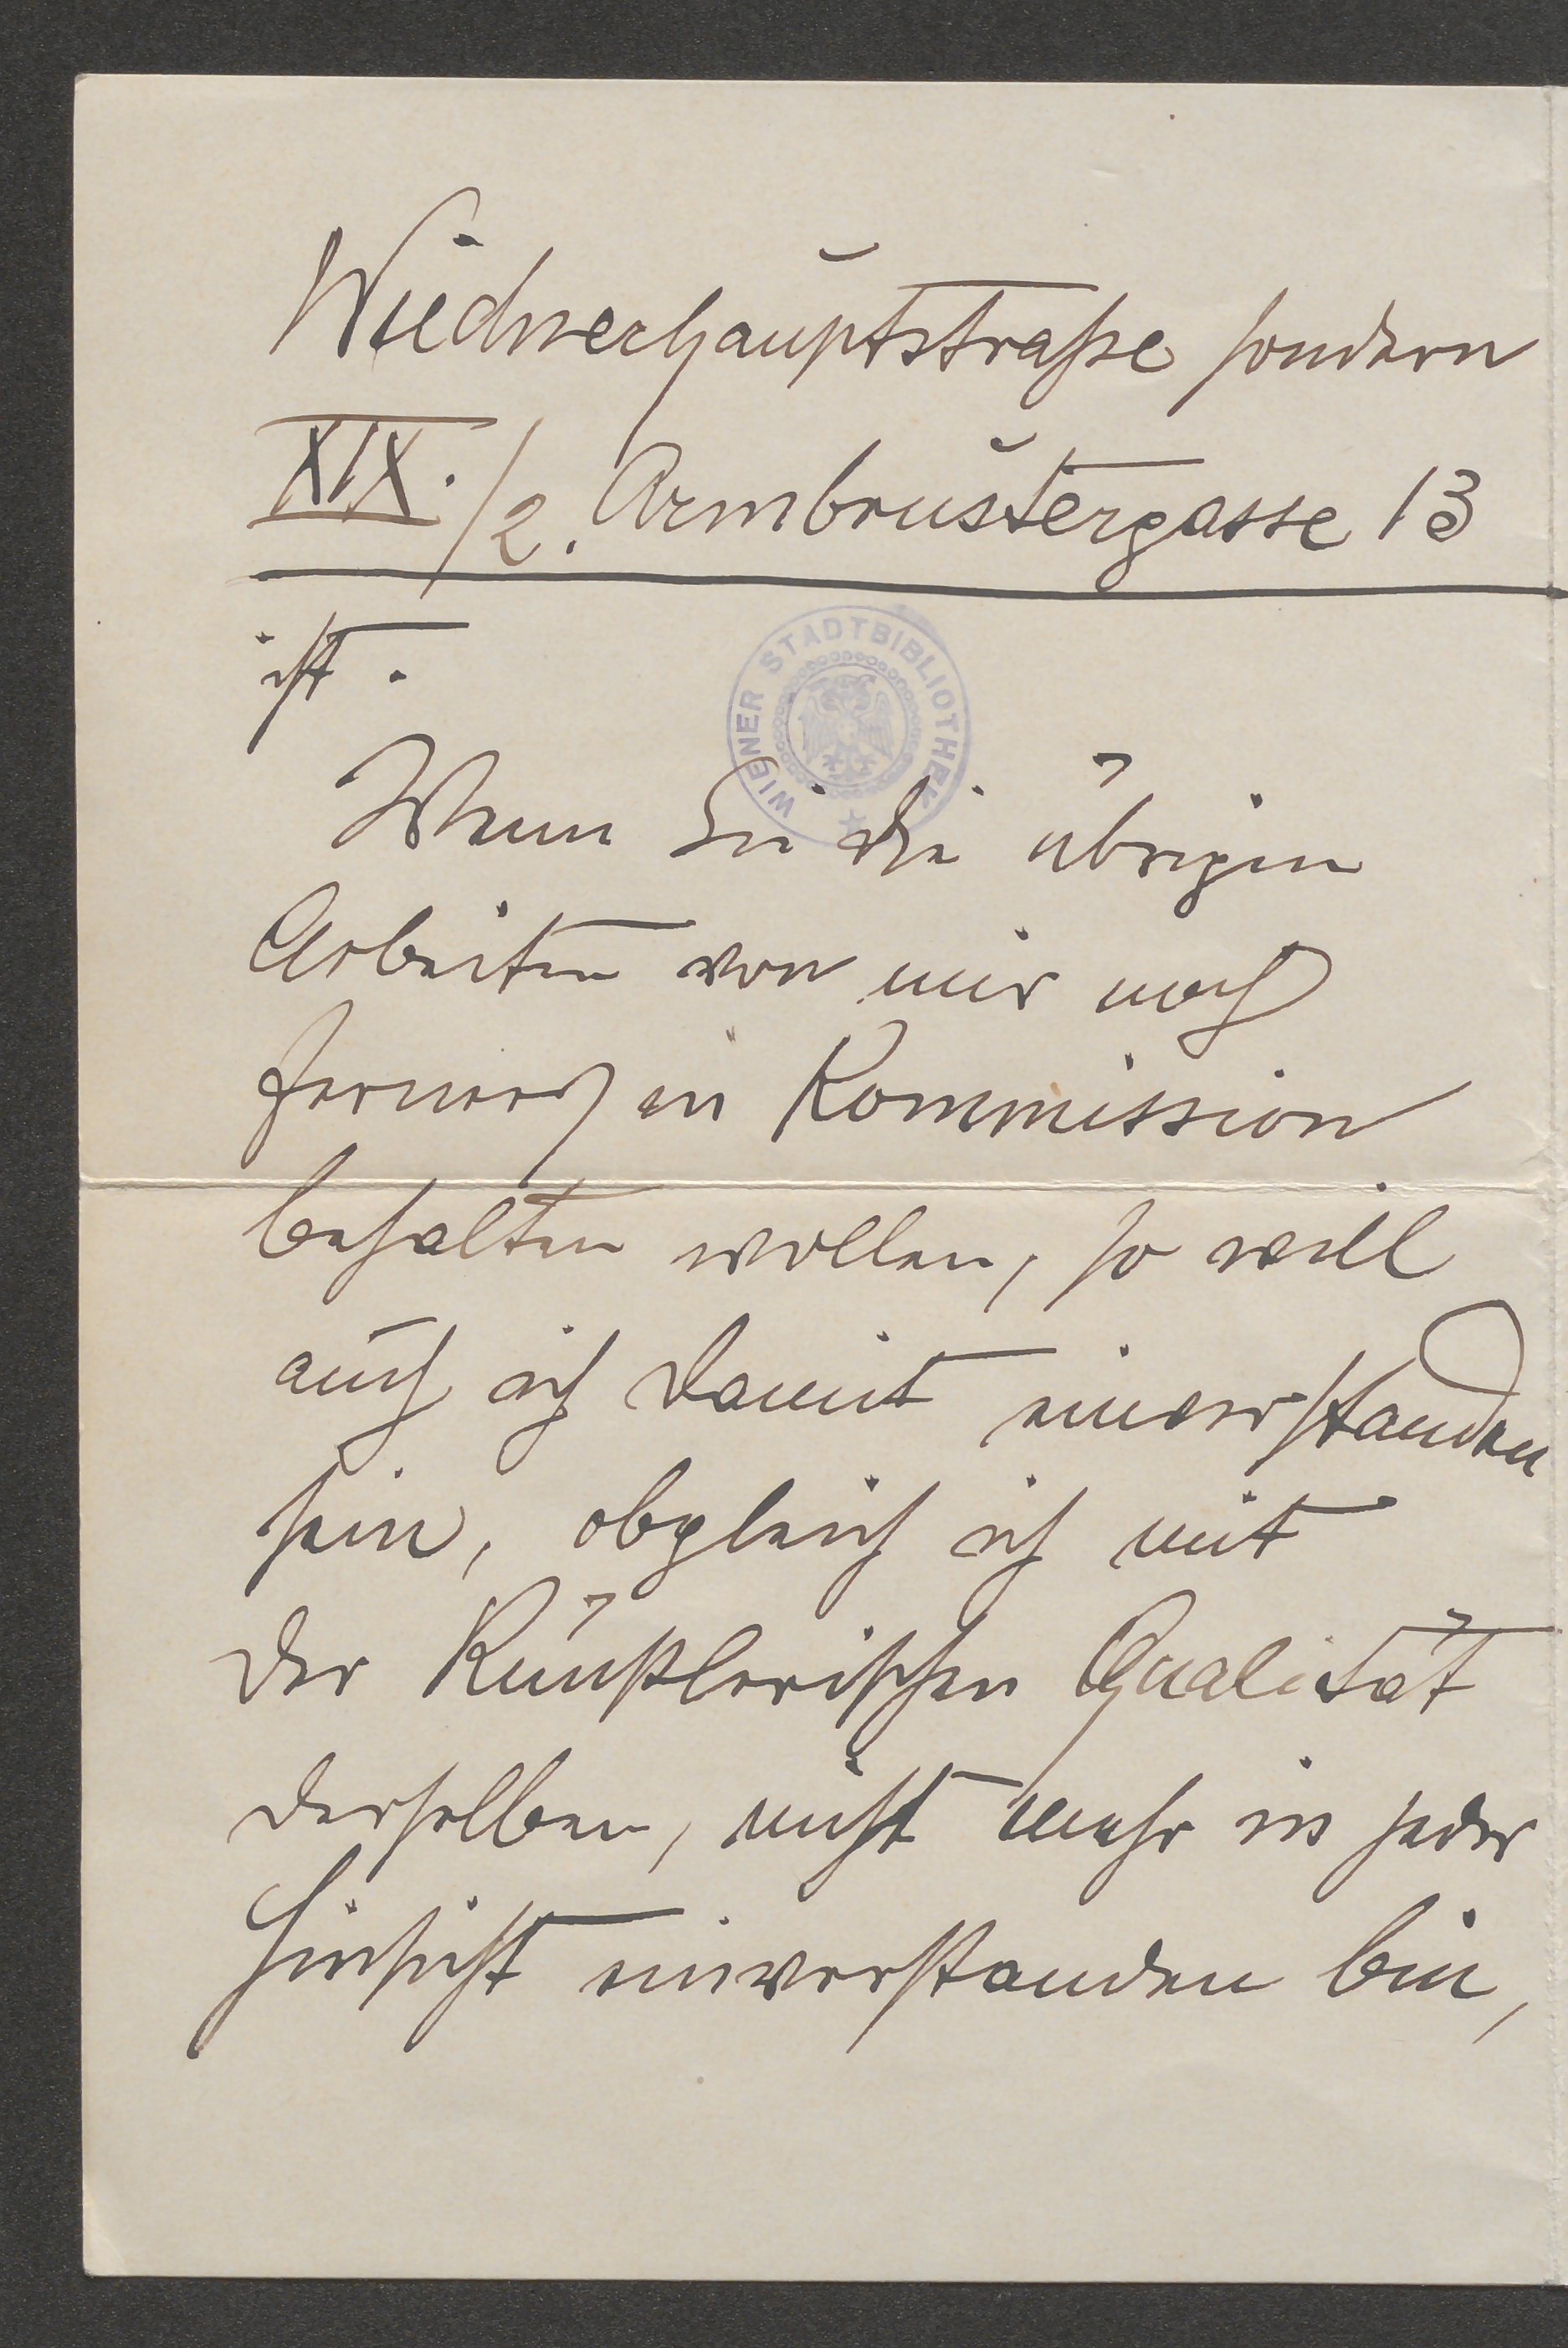 Wiednerhauptstraße sondern
XIX./2. Armbrustergasse 13
ist.
WIENER STADTBIBLIOTHEK
Wenn Sie die übrigen
Arbeiten von mir noch
ferner in Kommission
behalten wollen, so will
auch ich damit einverstanden
sein, obgleich ich mit
der künstlerischen Qualität
derselben, nicht mehr in jeder
Hinsicht einverstanden bin,